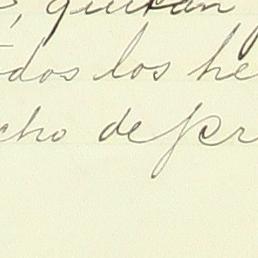 , quitan
dos los he
cho de pr